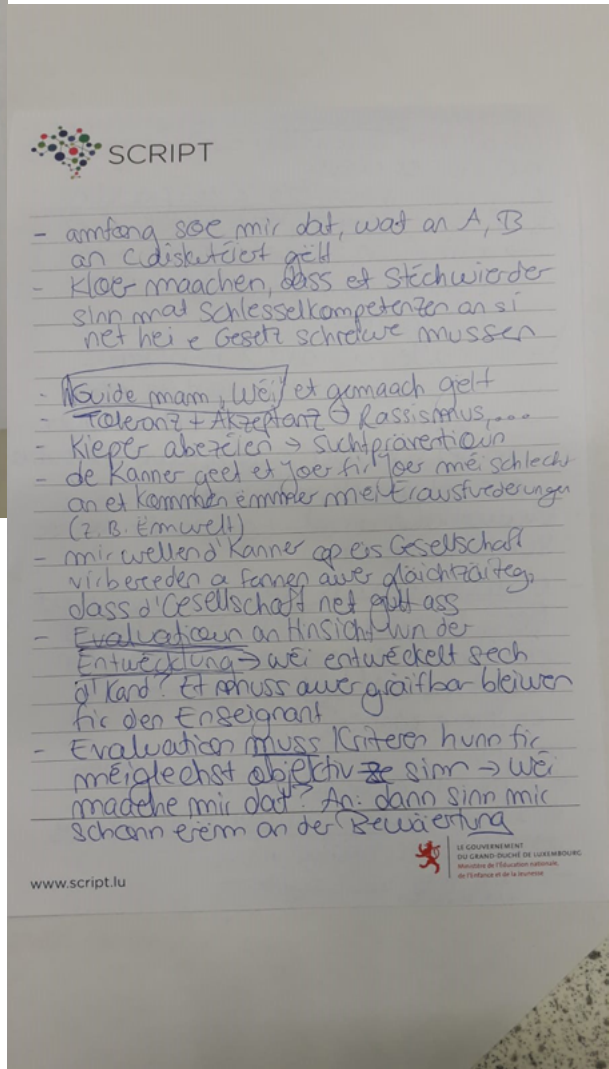 SCRIPT
- amfang soe mir dat, wat an A, B
an C diskutéiert gëtt
- Kloer maachen, dass et Stéchwierder
sinn mat Schlësselkompetenzen an si
net hei e Gesetz schreiwe mussen
- Guide mam "Wéi" et gemaach gëtt
- Toleranz + Akzeptanz → Rassismus,...
- Kieper abezéien → Suchtpräventioun
- de Kanner geet et Joer fir Joer méi schlecht
an et kommen ëmmer méi Erausfuederungen
(z.B. Ëmwelt)
- mir wëllen d'Kanner op eis Gesellschaft
virbereeden a fannen awer gläichzäiteg,
dass d'Gesellschaft net gutt ass
- Evaluatioun an Hinsicht vun der
Entwécklung → wéi entwéckelt sech
d'Kand? Et muss awer gräifbar bleiwen
fir den Enseignant
- Evaluation muss Kritären hunn fir
méiglechst objektiv ze sinn → wéi
maache mir dat? An: dann sinn mir
schonn erëm an der Bewäertung
LE GOUVERNEMENT
DU GRAND-DUCHÉ DE LUXEMBOURG
Ministère de l'Éducation nationale,
de l'Enfance et de la Jeunesse
www.script.lu